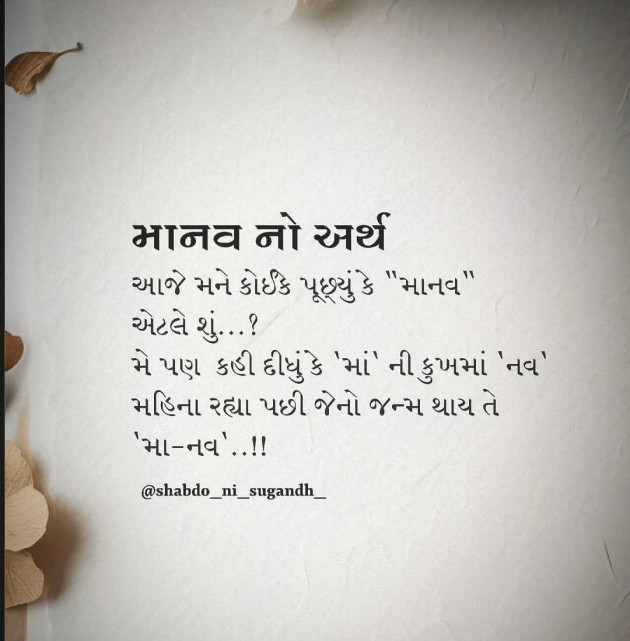 માનવ નો અર્થ
આજે મને કોઈકે પૂછ્યું કે "માનવ"
એટલે શું...?
મે પણ કહી દીધું કે 'માં' ની કુખમાં 'નવ'
મહિના રહ્યા પછી જેનો જન્મ થાય તે
'મા-નવ'..!!
@shabdo_ni_sugandh_